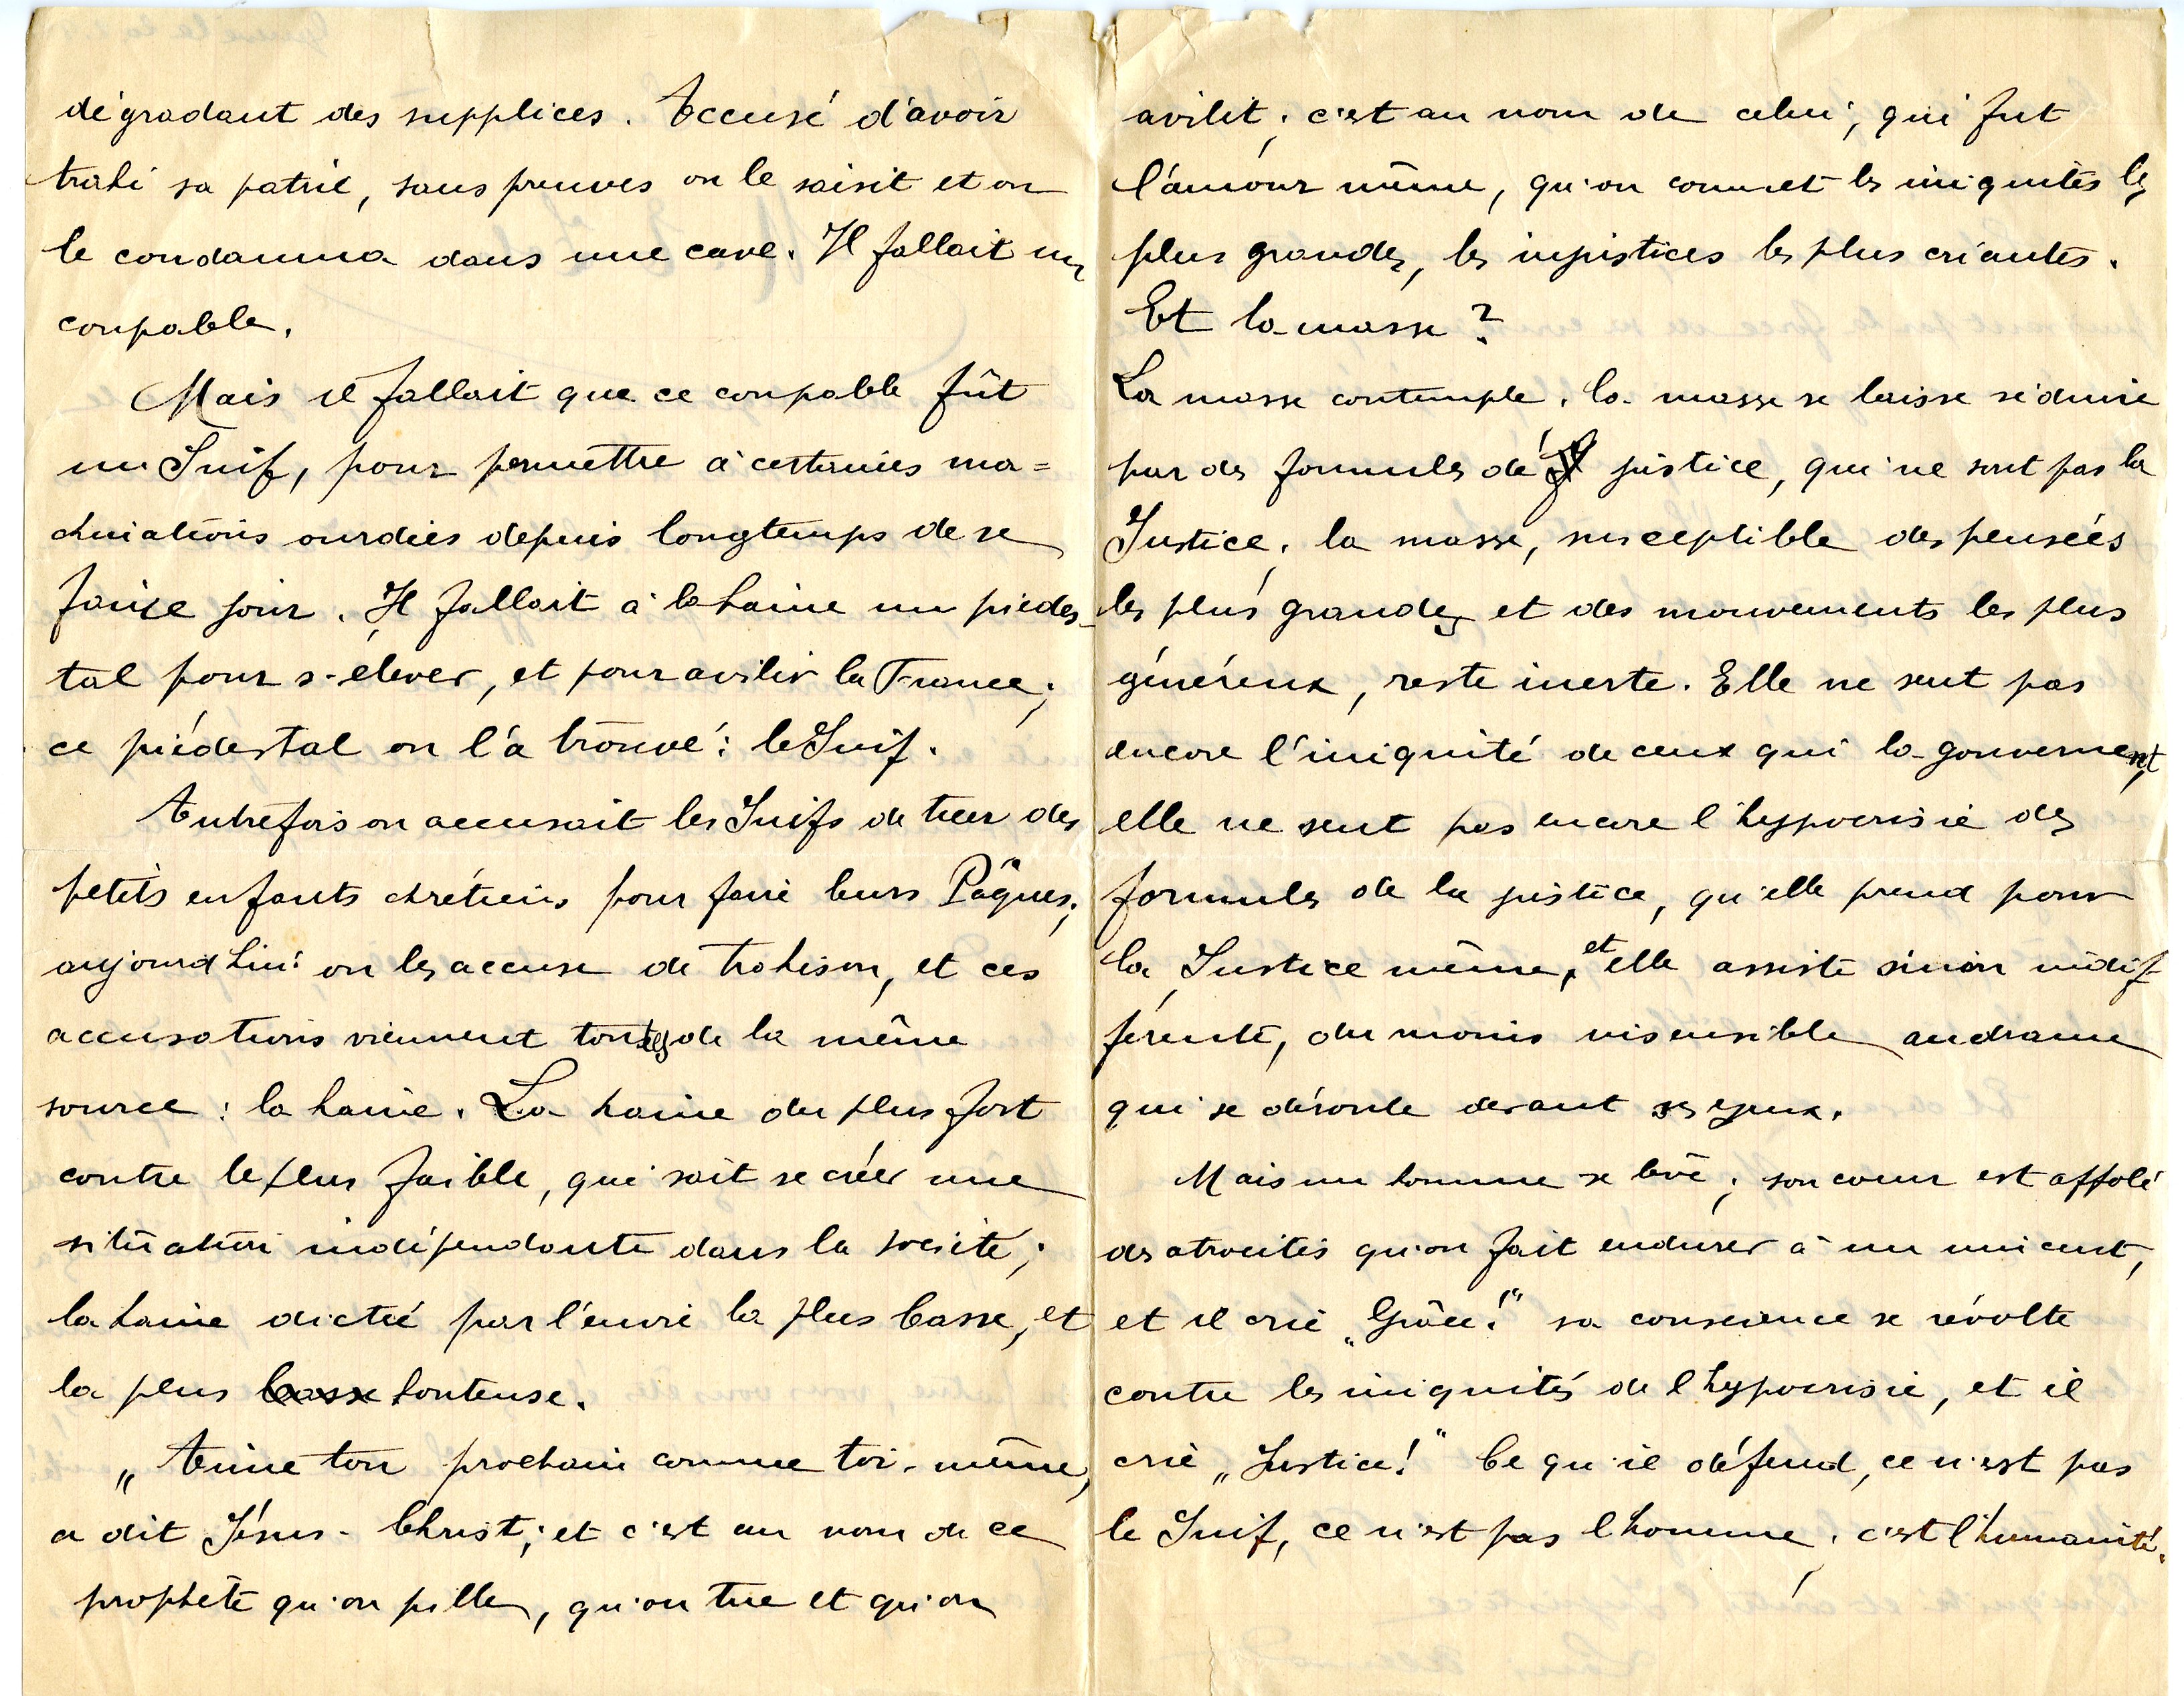 dégradant des supplices. Accusé d'avoir
trahi sa patrie, sans preuves on le saisit et on
le condamna dans une cave. Il fallait un
coupable.
Mais il fallait que ce coupable fût
un Juif, pour permettre à certaines ma=
chinations ourdies depuis longtemps de se
faire jour. Il fallait à la haine un piedes-
tal pour s'élever, et pour avilir la France;
ce piédestal on l'a trouvé: le Juif.
Autrefois on accusait les Juifs de tuer des
petits enfants chrétiens pour faire leurs Pâques;
aujourd'hui on les accuse de trahison, et ces
accusations viennent toutes de la même
source: la haine. La haine du plus fort
contre le plus faible, qui sait se créer une
situation indépendante dans la société;
la haine dictée par l'envie la plus basse, et
la plus basse honteuse.
„Aime ton prochain comme toi-même,
a dit Jésus-Christ; et c'est au nom de ce
prophète qu'on pille, qu'on tue et qu'on
avilit; c'est au nom de celui, qui fut
l'amour même, qu'on commet les iniquités les
plus grandes, les injustices les plus criantes.
Et la masse?
La masse contemple; la masse se laisse séduire
par des formules de justice, qui ne sont pas la
Justice; la masse, susceptible des pensées
les plus grandes et des mouvements les plus
généreux, reste inerte. Elle ne sent pas
encore l'iniquité de ceux qui la gouvernent,
elle ne sent pas encore l'hypocrisie des
formules de la justice, qu'elle prend pour
la Justice même, et elle assiste sinon indif-
férente, du moins insensible au drame
qui se déroule devant ses yeux.
Mais un homme se lève; son cœur est affolé
des atrocités qu'on fait endurer à un innocent,
et il crie „Grâce!" sa conscience se révolte
contre les iniquités de l'hypocrisie, et il
crie „Justice!" Ce qu'il défend, ce n'est pas
le Juif, ce n'est pas l'homme; c'est l'humanité.